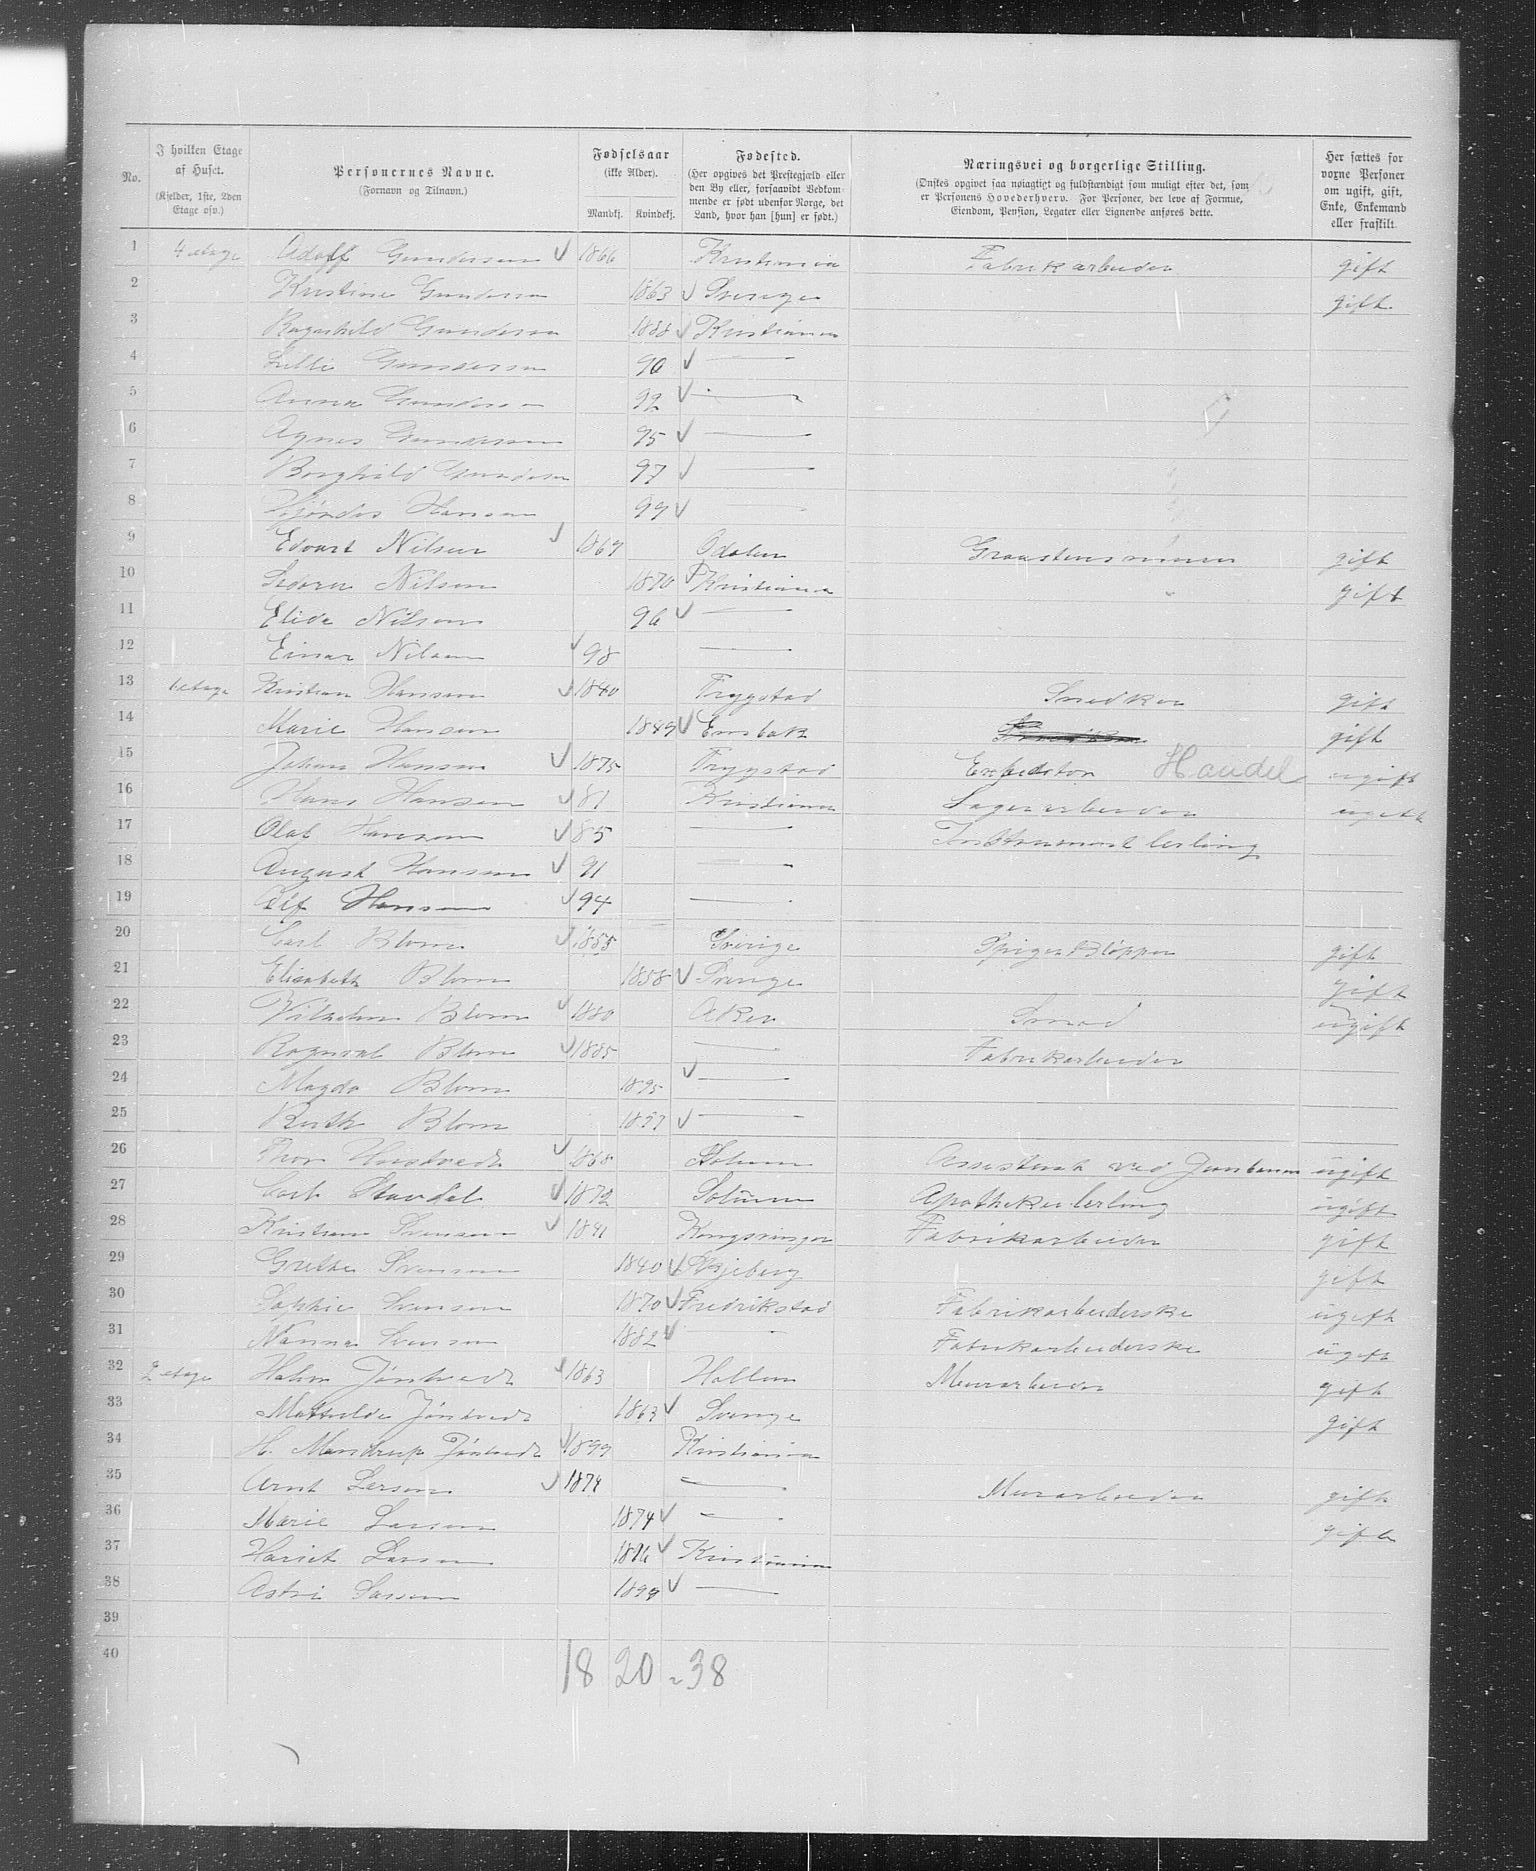 No.
I hvilken Etage af Huset.
(Kjelder, 1ste, 2den Etage osv.)
Personernes Navne.
(Fornavn og Tilnavn.)
Fødselsaar
(ikke Alder).
Mandkj.
Kvindekj.
Fødested.
(Her opgives det Prestegjæld eller den By eller, forsaavidt Vedkommende er født udenfor Norge, det Land, hvor han [hun] er født.)
Næringsvei og borgerlige Stilling.
(Ønskes opgivet saa nøiagtigt og fuldstændigt som muligt efter det, som er Personens Hovederhverv. For Personer, der leve af Formue, Eiendom, Pension, Legater eller Lignende anføres dette.
Her sættes for voxne Personer om ugift, gift, Enke, Enkemand eller fraskilt.
1 4 etage Adolf Gundersen 1866 Kristiania Fabrikarbeider gift
2 Kristine Gundersen 1863 Sverige gift
3 Ragnhild Gundersen 1888 Kristiania
4 Lilli Gundersen 90 —
5 Anna Gundersen 92 —
6 Agnes Gundersen 95 —
7 Borghild Gundersen 97 —
8 Hjørdis Hansen 99
9 Edvart Nilsen 1867 Odalen Graastensminer gift
10 Nilsen 1870 Kristiania gift
11 Elida Nilsen 96 —
12 Einar Nilsen 98 —
13 1 etage Kristian Hansen 1840 Trygstad Snedker gift
14 Marie Hansen 1849 Ensbak gift
15 Johan Hansen 1875 Trygstad Expeditør Handel ugift
16 Hans Hansen 81 Kristiania Lagerarbeider ugift
17 Olaf Hansen 85 — Instrument lerling
18 August Hansen 91 —
19 Alf Hansen 94 —
20 Carl Blom 1855 Sverige Spiger Kløpper gift
21 Elisabeth Blom 1858 Sverige gift
22 Vilhelm Blom 1880 Aker Smed ugift
23 Ragnval Blom 1885 — Fabrikarbeider
24 Magda Blom 1895 —
25 Ruth Blom 1897 —
26 Thor 1868 Solum Assistent ved Jernbanen ugift
27 Carl 1872 Solum Apothekerlerling ugift
28 Kristian Svensen 1841 Kongsvinger Fabrikarbeider gift
29 Grethe Svensen 1840 Skjeberg gift
30 Sophie Svensen 1870 Fredrikstad Fabrikarbeiderske ugift
31 Nanna Svensen 1882 Fabrikarbeiderske ugift
32 2 etage Halvor Jøntvedt 1863 Murarbeider gift
33 Mathilde Jøntvedt 1863 Sverige gift
34 H. Mandrup Jøntvedt 1899 Kristiania
35 Arnt Larsen 1874 — Murarbeider gift
36 Marie Larsen 1874 — gift
37 Hariet Larsen 1896 Kristiania
38 Astri Larsen 1899 —
39
40
18 20 = 38